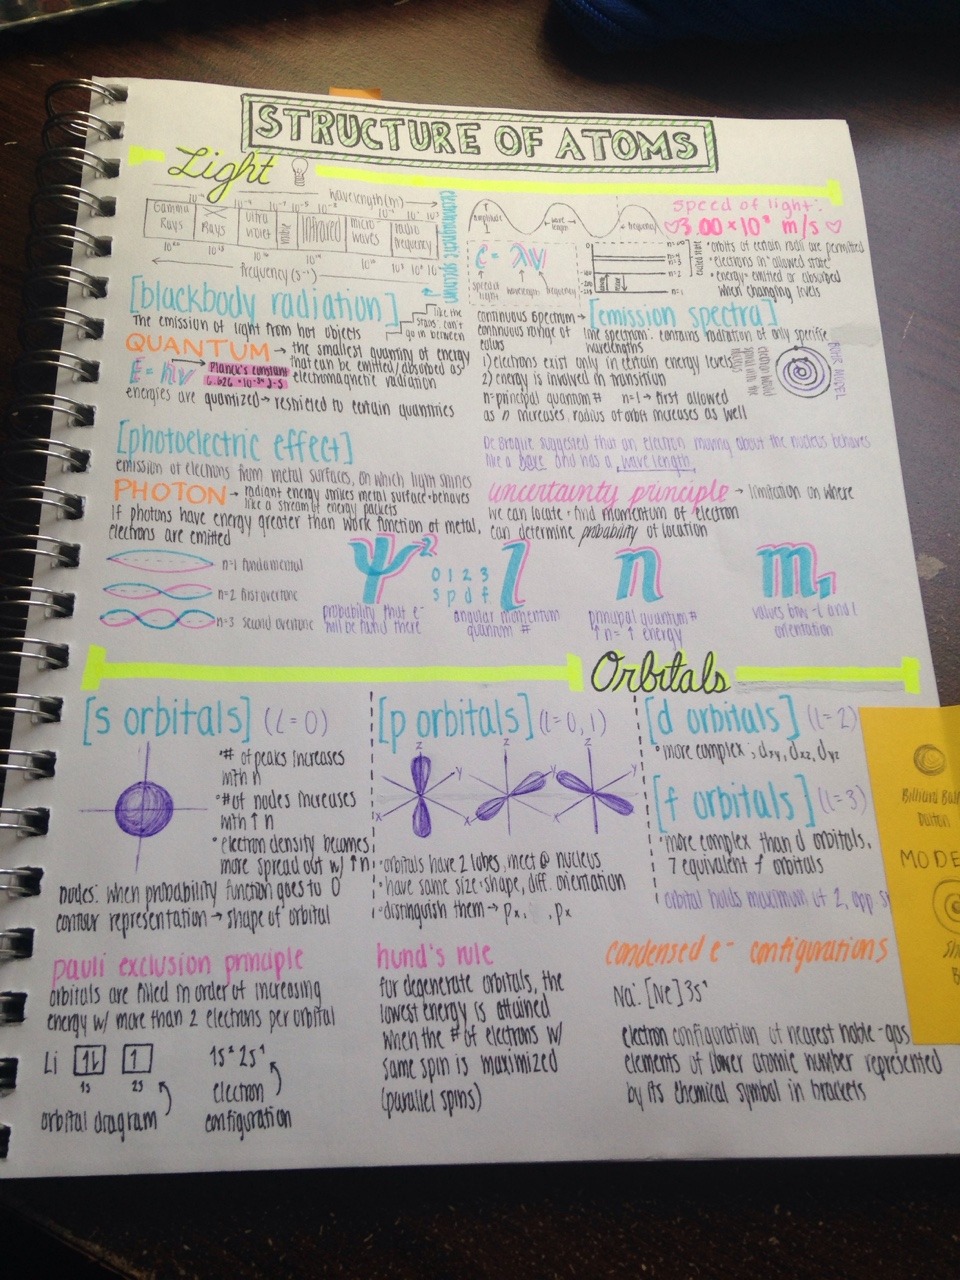 STRUCTURE OF ATOMS
Light
wavelength(m)
Gamma Rays
X Rays
Ultra violet
visible
Infrared
micro waves
radio frequency
frequency (s⁻¹)
electromagnetic spectrum
amplitude
wave length
frequency
c = λν
speed of light
wavelength
frequency
speed of light:
♡3.00 × 10⁸ m/s ♡
•orbits of certain radii are permitted
•electrons in "allowed state"
•energy emitted or absorbed
when changing levels
[blackbody radiation]
The emission of light from hot objects
like the
stairs, can't
go in between
QUANTUM → the smallest quantity of energy
that can be emitted/absorbed as
electromagnetic radiation
E = hν
Planck's constant
6.626 × 10⁻³⁴ J-s
energies are quantized → restricted to certain quantities
continuous spectrum →
continuous range of
colors
[emission spectra]
line spectrum: contains radiation of only specific
wavelengths
1) electrons exist only in certain energy levels
2) energy is involved in transition
n=principal quantum # n=1 → first allowed
as n increases, radius of orbit increases as well
BOHR MODEL
[photoelectric effect]
emission of electrons from metal surfaces, on which light shines
PHOTON → radiant energy strikes metal surface + behaves
like a stream of energy packets
If photons have energy greater than work function of metal,
electrons are emitted
De Broglie suggested that an electron moving about the nucleus behaves
like a wave and has a wavelength
uncertainty principle → limitation on where
we can locate + find momentum of electron
can determine probability of location
n=1 fundamental
n=2 first overtone
n=3 second overtone
Ψ²
probability that e⁻
will be found there
0 1 2 3
s p d f
l
angular momentum
quantum #
n
principal quantum #
↑n = ↑ energy
mₗ
values btw -l and l
orientation
Orbitals
[s orbitals] (l=0)
•# of peaks increases
with n
•# of nodes increases
with ↑ n
•electron density becomes
more spread out w/ ↑n
nodes: when probability function goes to 0
contour representation → shape of orbital
[p orbitals] (l=0,1)
z
y
x
z
z
y
x
•orbitals have 2 lobes, meet @ nucleus
•have same size + shape, diff. orientation
•distinguish them → pₓ, , pₓ
[d orbitals] (l=2)
•more complex; dxy, dxz, dyz
[f orbitals] (l=3)
•more complex than d orbitals,
7 equivalent f orbitals
orbital holds maximum of 2, opp
Billiard Ball
Dalton
MODE
pauli exclusion principle
orbitals are filled in order of increasing
energy w/ more than 2 electrons per orbital
Li
1s 2s
orbital diagram
1s² 2s¹
electron
configuration
hund's rule
for degenerate orbitals, the
lowest energy is attained
when the # of electrons w/
same spin is maximized
(parallel spins)
condensed e⁻ configurations
Na: [Ne]3s¹
electron configuration of nearest noble-gas
elements of lower atomic number represented
by its chemical symbol in brackets